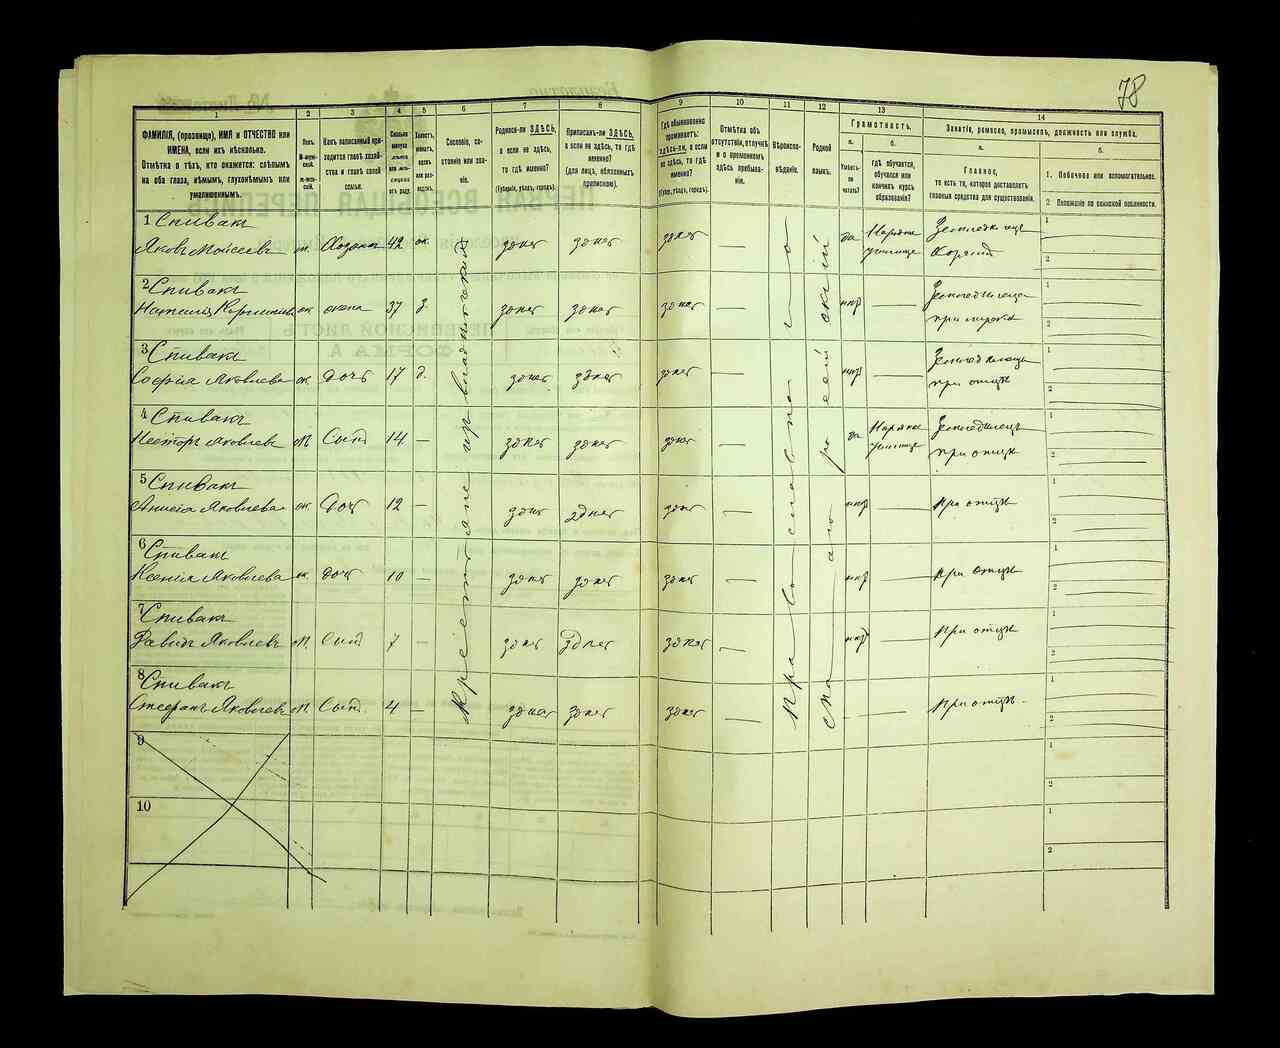 78
1
2
3
4
5
6
7
8
9
10
11
12
13
14
ФАМИЛІЯ, (прозвище), ИМЯ и ОТЧЕСТВО или
ИМЕНА, если ихъ нѣсколько.
Отмѣтка о тѣхъ, кто окажется: слѣпымъ
на оба глаза, нѣмымъ, глухонѣмымъ или
умалишеннымъ.
Полъ.
Какъ записанный при-
ходится главѣ хозяй-
ства и главѣ своей
семьи.
Сословіе, со-
стояніе или зва-
ніе.
Родился-ли ЗДѢСЬ,
а если не здѣсь,
то гдѣ именно?
(Губернія, уѣздъ, городъ).
Приписанъ-ли ЗДѢСЬ,
а если не здѣсь, то гдѣ
именно?
(для лицъ, обязанных
припискою).
Гдѣ обыкновенно
проживаетъ:
здѣсь-ли, а если
не здѣсь, то гдѣ
именно?
(Губ., уѣздъ, городъ).
Отмѣтка объ
отсутствіи, отлучкѣ
и о временномъ
здѣсь пребыва-
ніи.
Вѣроиспо-
вѣданіе.
Родной
языкъ.
Грамотность.
а.
Умѣетъ-
ли
читать?
б.
гдѣ обучается,
обучался или
кончилъ курсъ
образованія?
Занятіе, ремесло, промыселъ, должность или служба.
а.
Главное,
то есть то, которое доставляетъ
главныя средства для существованія.
б.
1. Побочное или вспомогательное.
2 Положеніе по воинской повинности.
1 Спивакъ
Яковъ Моисеевъ м. Хозяинъ 42 ж. здѣсь здѣсь здѣсь — да Народное училище Земледѣлецъ
2 Спивакъ
Наталія ж жена 37 з. здѣсь здѣсь здѣсь — нѣтъ — при мужѣ
3 Спивакъ
Софія Яковлева ж. дочь 17 д. здѣсь здѣсь здѣсь — нѣтъ — при отцѣ
4 Спивакъ
Несторъ Яковлевъ М. Сынъ 14 — здѣсь здѣсь здѣсь — да Народное училище Земледѣлецъ при отцѣ
5 Спивакъ
Анисія Яковлева ж. дочь 12 — здѣсь здѣсь здѣсь — нѣтъ — при отцѣ
6 Спивакъ
Ксенія Яковлева ж. дочь 10 — здѣсь здѣсь здѣсь — нѣтъ — при отцѣ
7 Спивакъ
Давидъ Яковлевъ М. Сынъ 7 — здѣсь здѣсь здѣсь — нѣтъ при отцѣ
8 Спивакъ
Стефанъ Яковлевъ М. Сынъ 4 — здѣсь здѣсь здѣсь — — при отцѣ
9
10
Крестьяне изъ владѣльческихъ
православное
малороссійскій
1
2
1
2
1
2
1
2
1
2
1
2
1
2
1
2
1
2
1
2